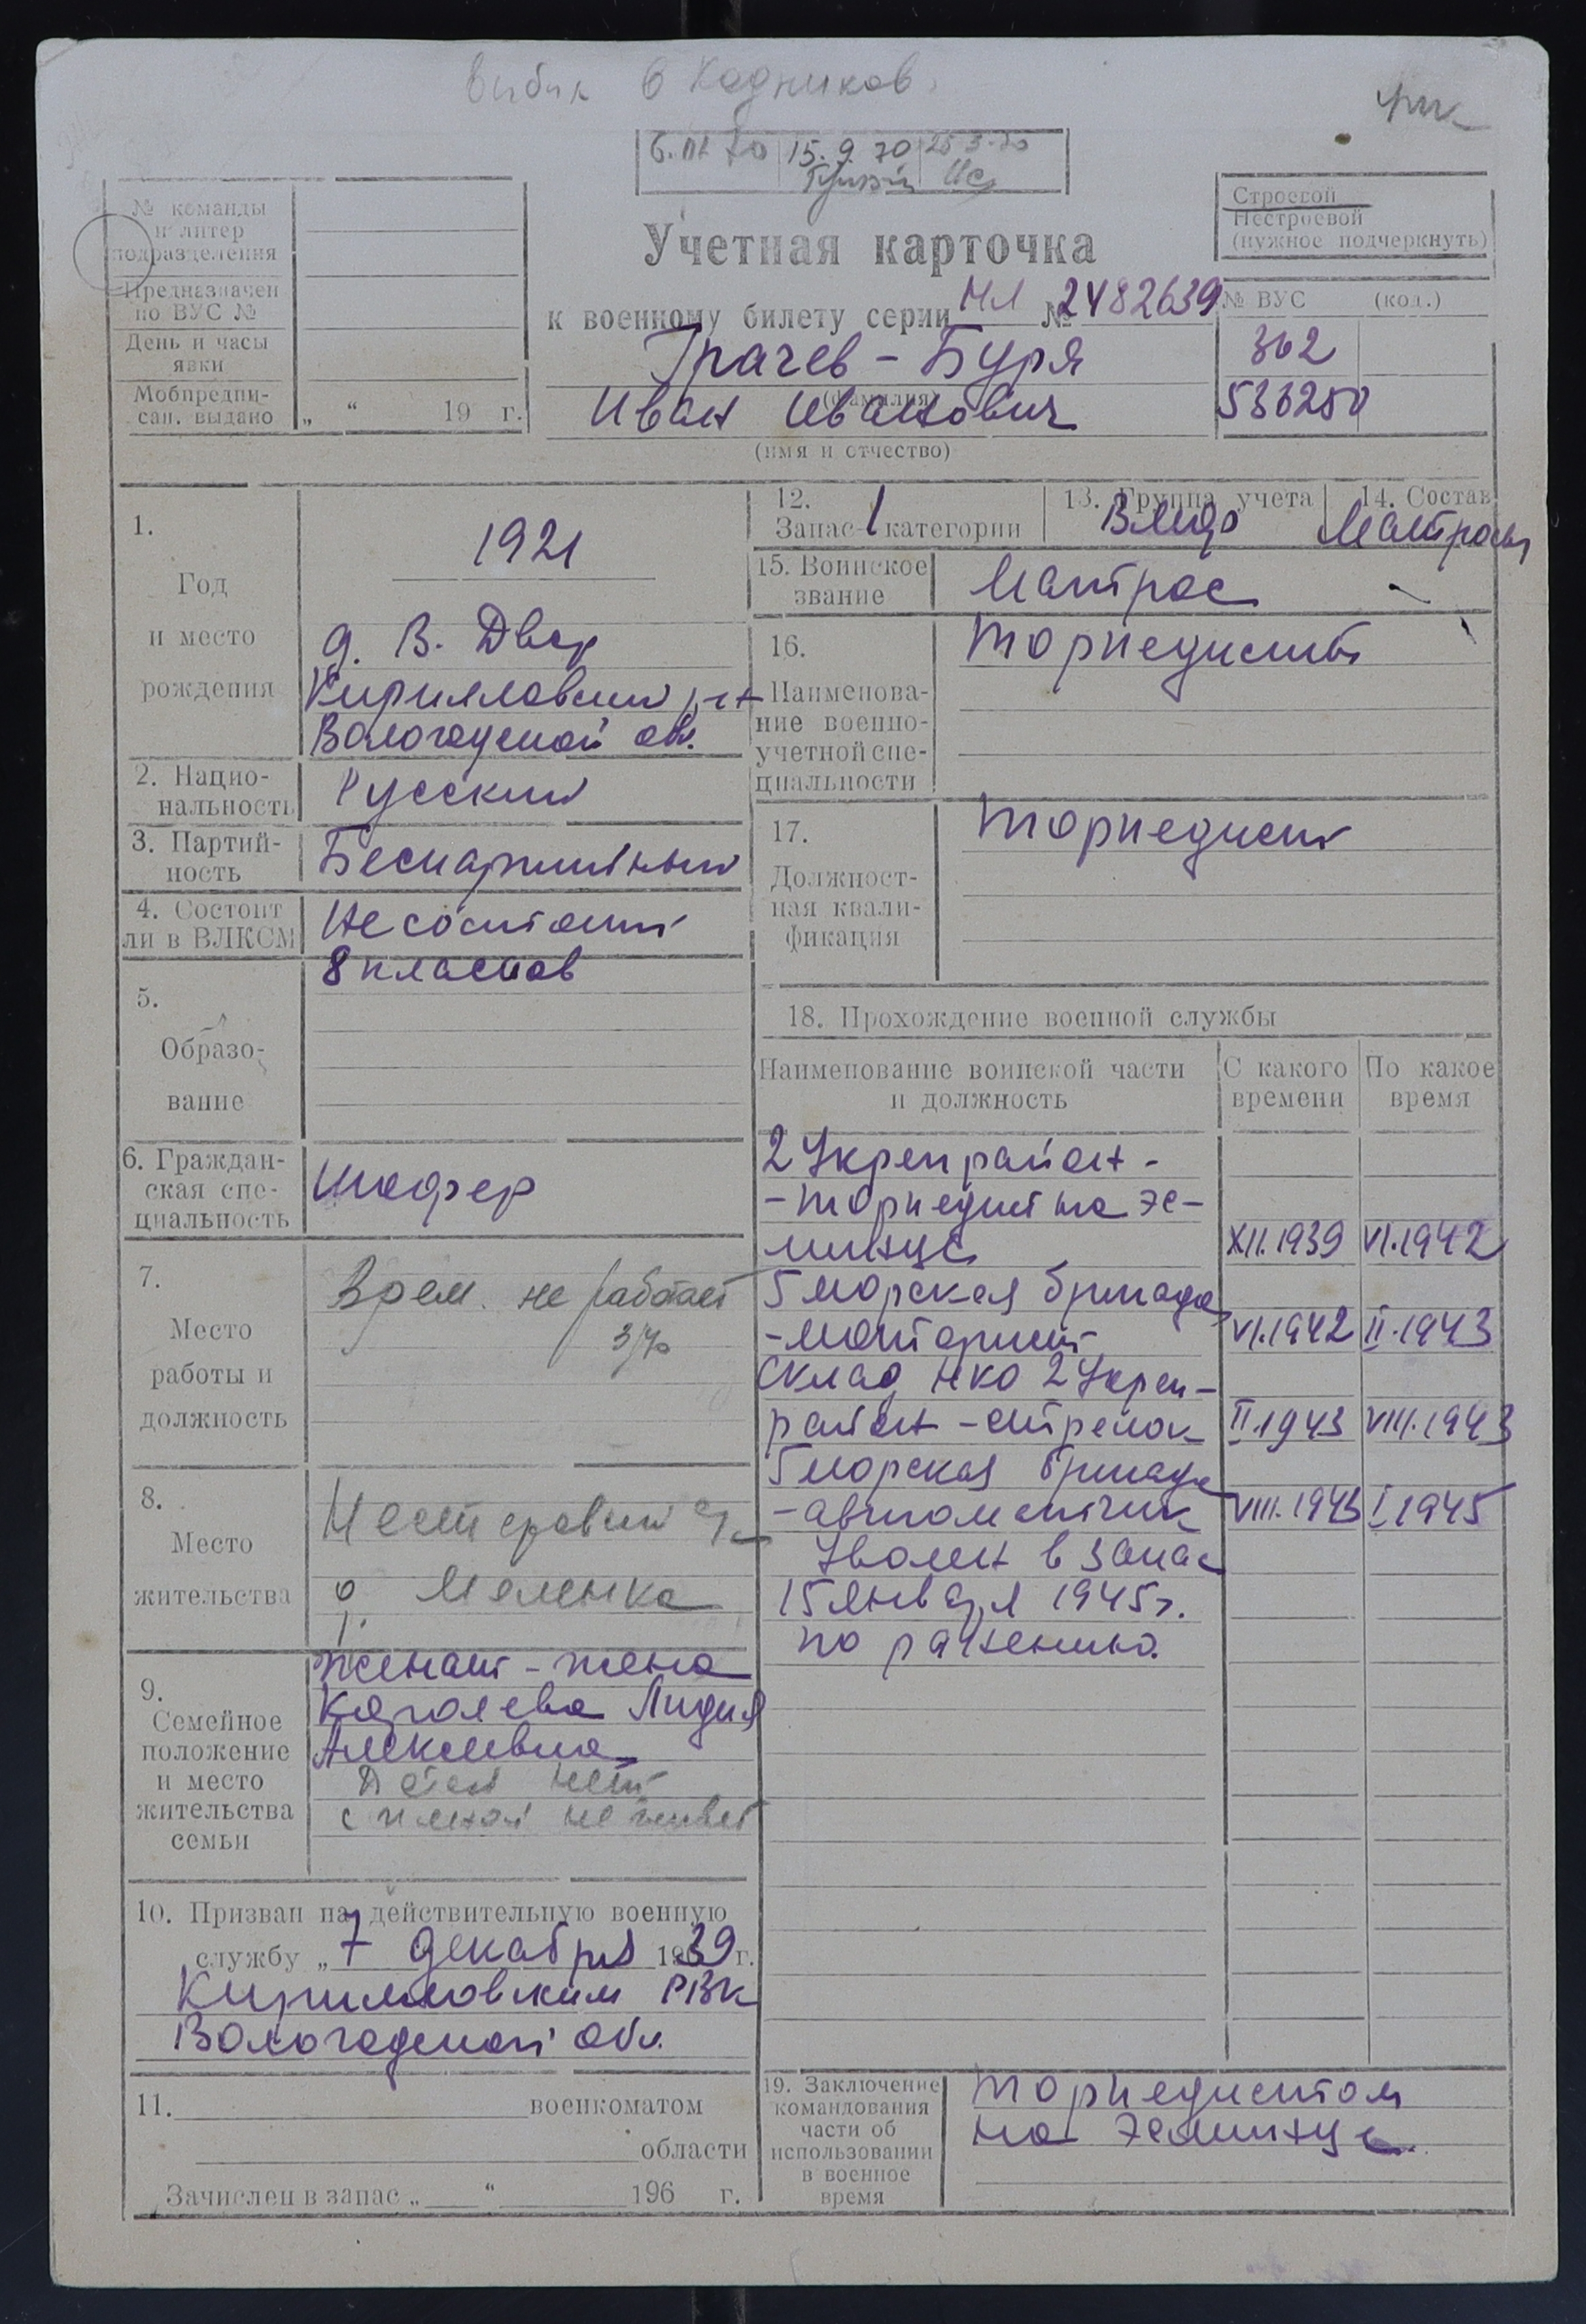 выбыл в Кадников.
15.9.70
№ команды
и литер
подразделения
Предназначен
по ВУС №
День и часы
явки
Мобпредпи-
сан. выдано „ “ 19 г.
Учетная карточка
к военному билету серии НЛ № 2482639
Грачев - Буря
(фамилия)
Иван Иванович
(имя и отчество)
Строевой
Нестроевой
(нужное подчеркнуть)
№ ВУС (код.)
362
536250
1.
Год
и место
рождения
1921
д. В. Двор
Кирилловский р-н
Вологодской обл.
2. Нацио-
нальность
Русский
3. Партий-
ность
Беспартийный
4. Состоит
ли в ВЛКСМ
Не состоит
5.
Образо-
вание
8 классов
6. Граждан-
ская спе-
циальность
Шофер
7.
Место
работы и
должность
Врем. не работает
8.
Место
жительства
д. Маленка
9.
Семейное
положение
и место
жительства
семьи
Женат - жена
Королева Лидия
Алексеевна
Детей нет
с женой не живет
10. Призван на действительную военную
службу „ 7 декабря 1939 г.
Кирилловским РВК
Вологодской обл.
11. военкоматом
области
Зачислен в запас „ “ 196 г.
12.
Запас 1 категории
13. Группа учета
ВМФ
14. Состав
Матросы
15. Воинское
звание
Матрос
16.
Наименова-
ние военно-
учетной спе-
циальности
Торпедисты
17.
Должност-
ная квали-
фикация
Торпедист
18. Прохождение военной службы
Наименование воинской части
и должность
С какого
времени
По какое
время
2 Укрепрайон -
- торпедист на эс-
минце XII.1939 VI.1942
5 морская бригада
- VI.1942 II.1943
Склад НКО 2 Укреп-
район - стрелок II.1943 VIII.1943
5 морская бригада
- автоматчик VIII.1943 I.1945
Уволен в запас
15 января 1945 г.
по ранению.
19. Заключение
командования
части об
использовании
в военное
время
Торпедистом
на эсминце.